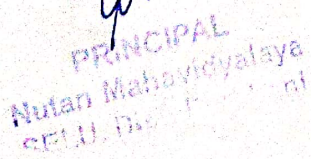 PRINCIPAL
Nutan Mahavidyalaya
SELU. Dist.